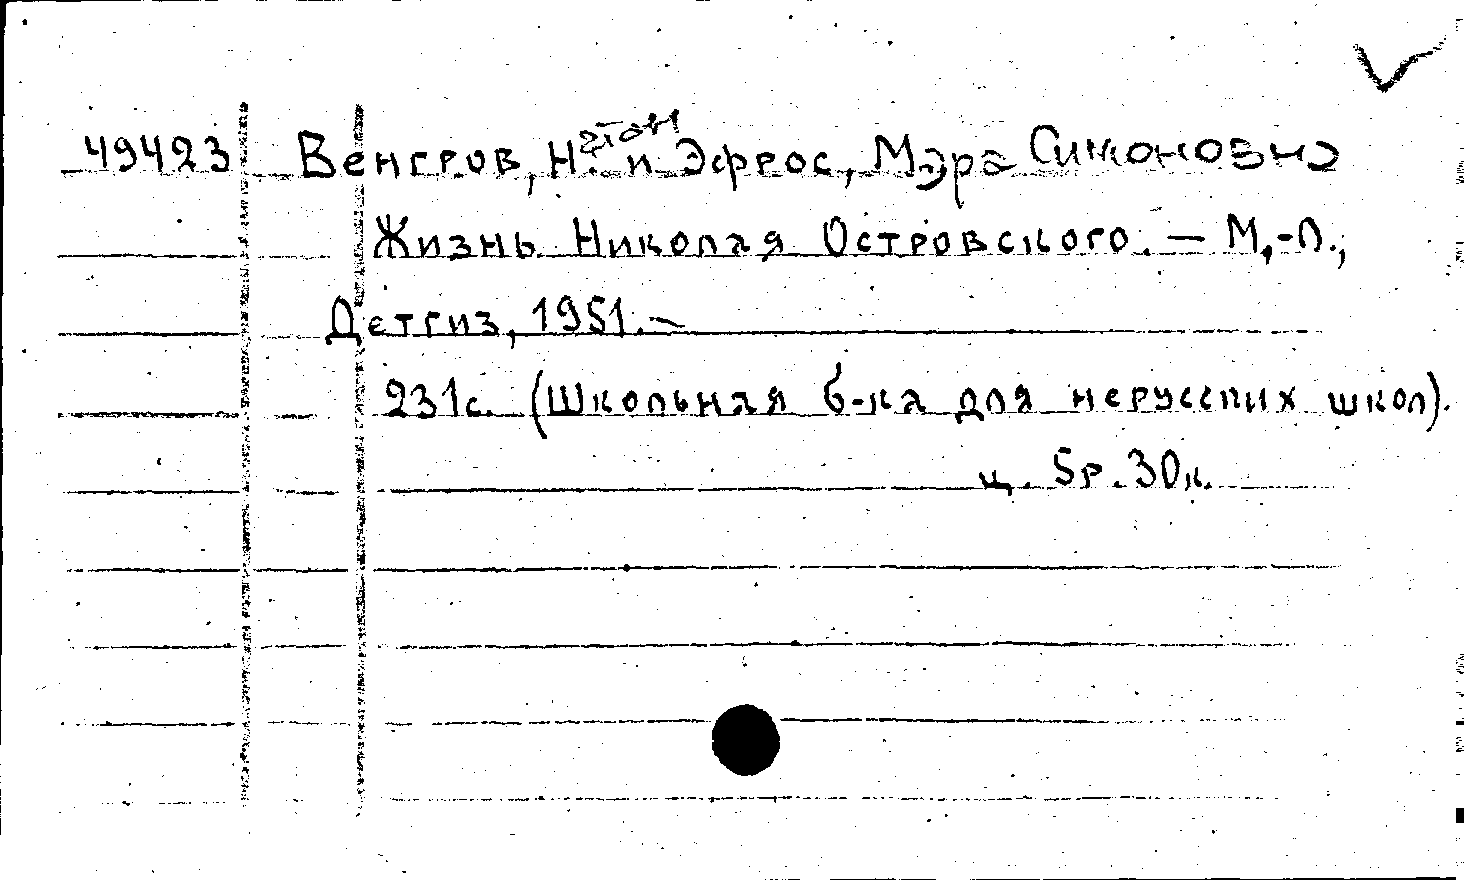 49423 Венгров, Натан и Эфрос, Мэра Симоновна
Жизнь Николая Островского. — М.-Л.,
Детгиз, 1951. —
231с. (Школьная б-ка для нерусских школ).
ц. 5р. 30к.